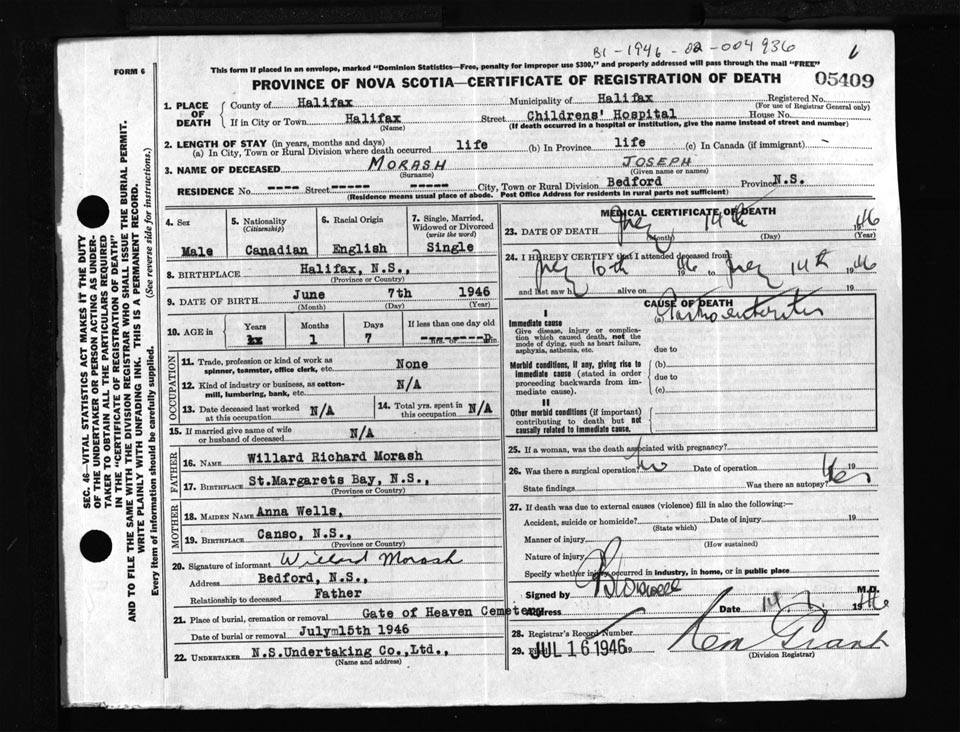 B1-1946-02-004936
6
FORM 6
This form if placed in an envelope, marked "Dominion Statistics—Free, penalty for improper use $300," and properly addressed will pass through the mail "FREE"
PROVINCE OF NOVA SCOTIA—CERTIFICATE OF REGISTRATION OF DEATH
05409
SEC. 46—VITAL STATISTICS ACT MAKES IT THE DUTY
OF THE UNDERTAKER OR PERSON ACTING AS UNDER-
TAKER TO OBTAIN ALL THE PARTICULARS REQUIRED
IN THE "CERTIFICATE OF REGISTRATION OF DEATH"
AND TO FILE THE SAME WITH THE DIVISION REGISTRAR WHO SHALL ISSUE THE BURIAL PERMIT.
WRITE PLAINLY WITH UNFADING INK. THIS IS A PERMANENT RECORD.
Every item of information should be carefully supplied. (See reverse side for instructions.)
1. PLACE OF DEATH
County of Halifax Municipality of Halifax Registered No.
(For use of Registrar General only)
If in City or Town Halifax Street Childrens' Hospital House No.
(Name) (If death occurred in a hospital or institution, give the name instead of street and number)
2. LENGTH OF STAY (in years, months and days)
(a) In City, Town or Rural Division where death occurred life (b) In Province life (c) In Canada (if immigrant) -
3. NAME OF DECEASED MORASH JOSEPH
(Surname) (Given name or names)
RESIDENCE No ---- Street ----- ----- City, Town or Rural Division Bedford Province N.S.
(Residence means usual place of abode. Post Office Address for residents in rural parts not sufficient)
4. Sex
Male
5. Nationality
(Citizenship)
Canadian
6. Racial Origin
English
7. Single, Married,
Widowed or Divorced
(write the word)
Single
8. BIRTHPLACE Halifax, N.S.,
(Province or Country)
9. DATE OF BIRTH June 7th 1946
(Month) (Day) (Year)
10. AGE in
Years Months Days If less than one day old
xx 1 7 Hrs. or Min.
OCCUPATION
11. Trade, profession or kind of work as
spinner, teamster, office clerk, etc. None
12. Kind of industry or business, as cotton-
mill, lumbering, bank, etc. N/A
13. Date deceased last worked
at this occupation N/A
14. Total yrs. spent in
this occupation N/A
15. If married give name of wife
or husband of deceased N/A
FATHER
16. NAME Willard Richard Morash
17. BIRTHPLACE St.Margarets Bay, N.S.,
(Province or Country)
MOTHER
18. MAIDEN NAME Anna Wells,
19. BIRTHPLACE Canso, N.S.,
(Province or Country)
20. Signature of informant Willard Morash
Address Bedford, N.S.,
Relationship to deceased Father
21. Place of burial, cremation or removal Gate of Heaven Cemetery
Date of burial or removal July 15th 1946
22. UNDERTAKER N.S.Undertaking Co.,Ltd.,
(Name and address)
MEDICAL CERTIFICATE OF DEATH
23. DATE OF DEATH July 14th 1946
(Month) (Day) (Year)
24. I HEREBY CERTIFY that I attended deceased from:
July 10th 1946 to July 14th 1946
and last saw h alive on 19
CAUSE OF DEATH
I
Immediate cause
Give disease, injury or complica-
tion which caused death, not the
mode of dying, such as heart failure,
asphyxia, asthenia, etc.
(a) Gastro enteritis
due to
Morbid conditions, if any, giving rise to
immediate cause (stated in order
proceeding backwards from im-
mediate cause).
(b)
due to
(c)
II
Other morbid conditions (if important)
contributing to death but not
causally related to immediate cause.
25. If a woman, was the death associated with pregnancy?
26. Was there a surgical operation? No Date of operation 19
State findings Was there an autopsy? Yes
27. If death was due to external causes (violence) fill in also the following:
Accident, suicide or homicide? Date of injury 19
(State which)
Manner of injury
(How sustained)
Nature of injury
Specify whether injury occurred in industry, in home, or in public place
Signed by M.D.
Address Date 14-7 1946
28. Registrar's Record Number
29. Filed JUL 16 1946 19
(Division Registrar)